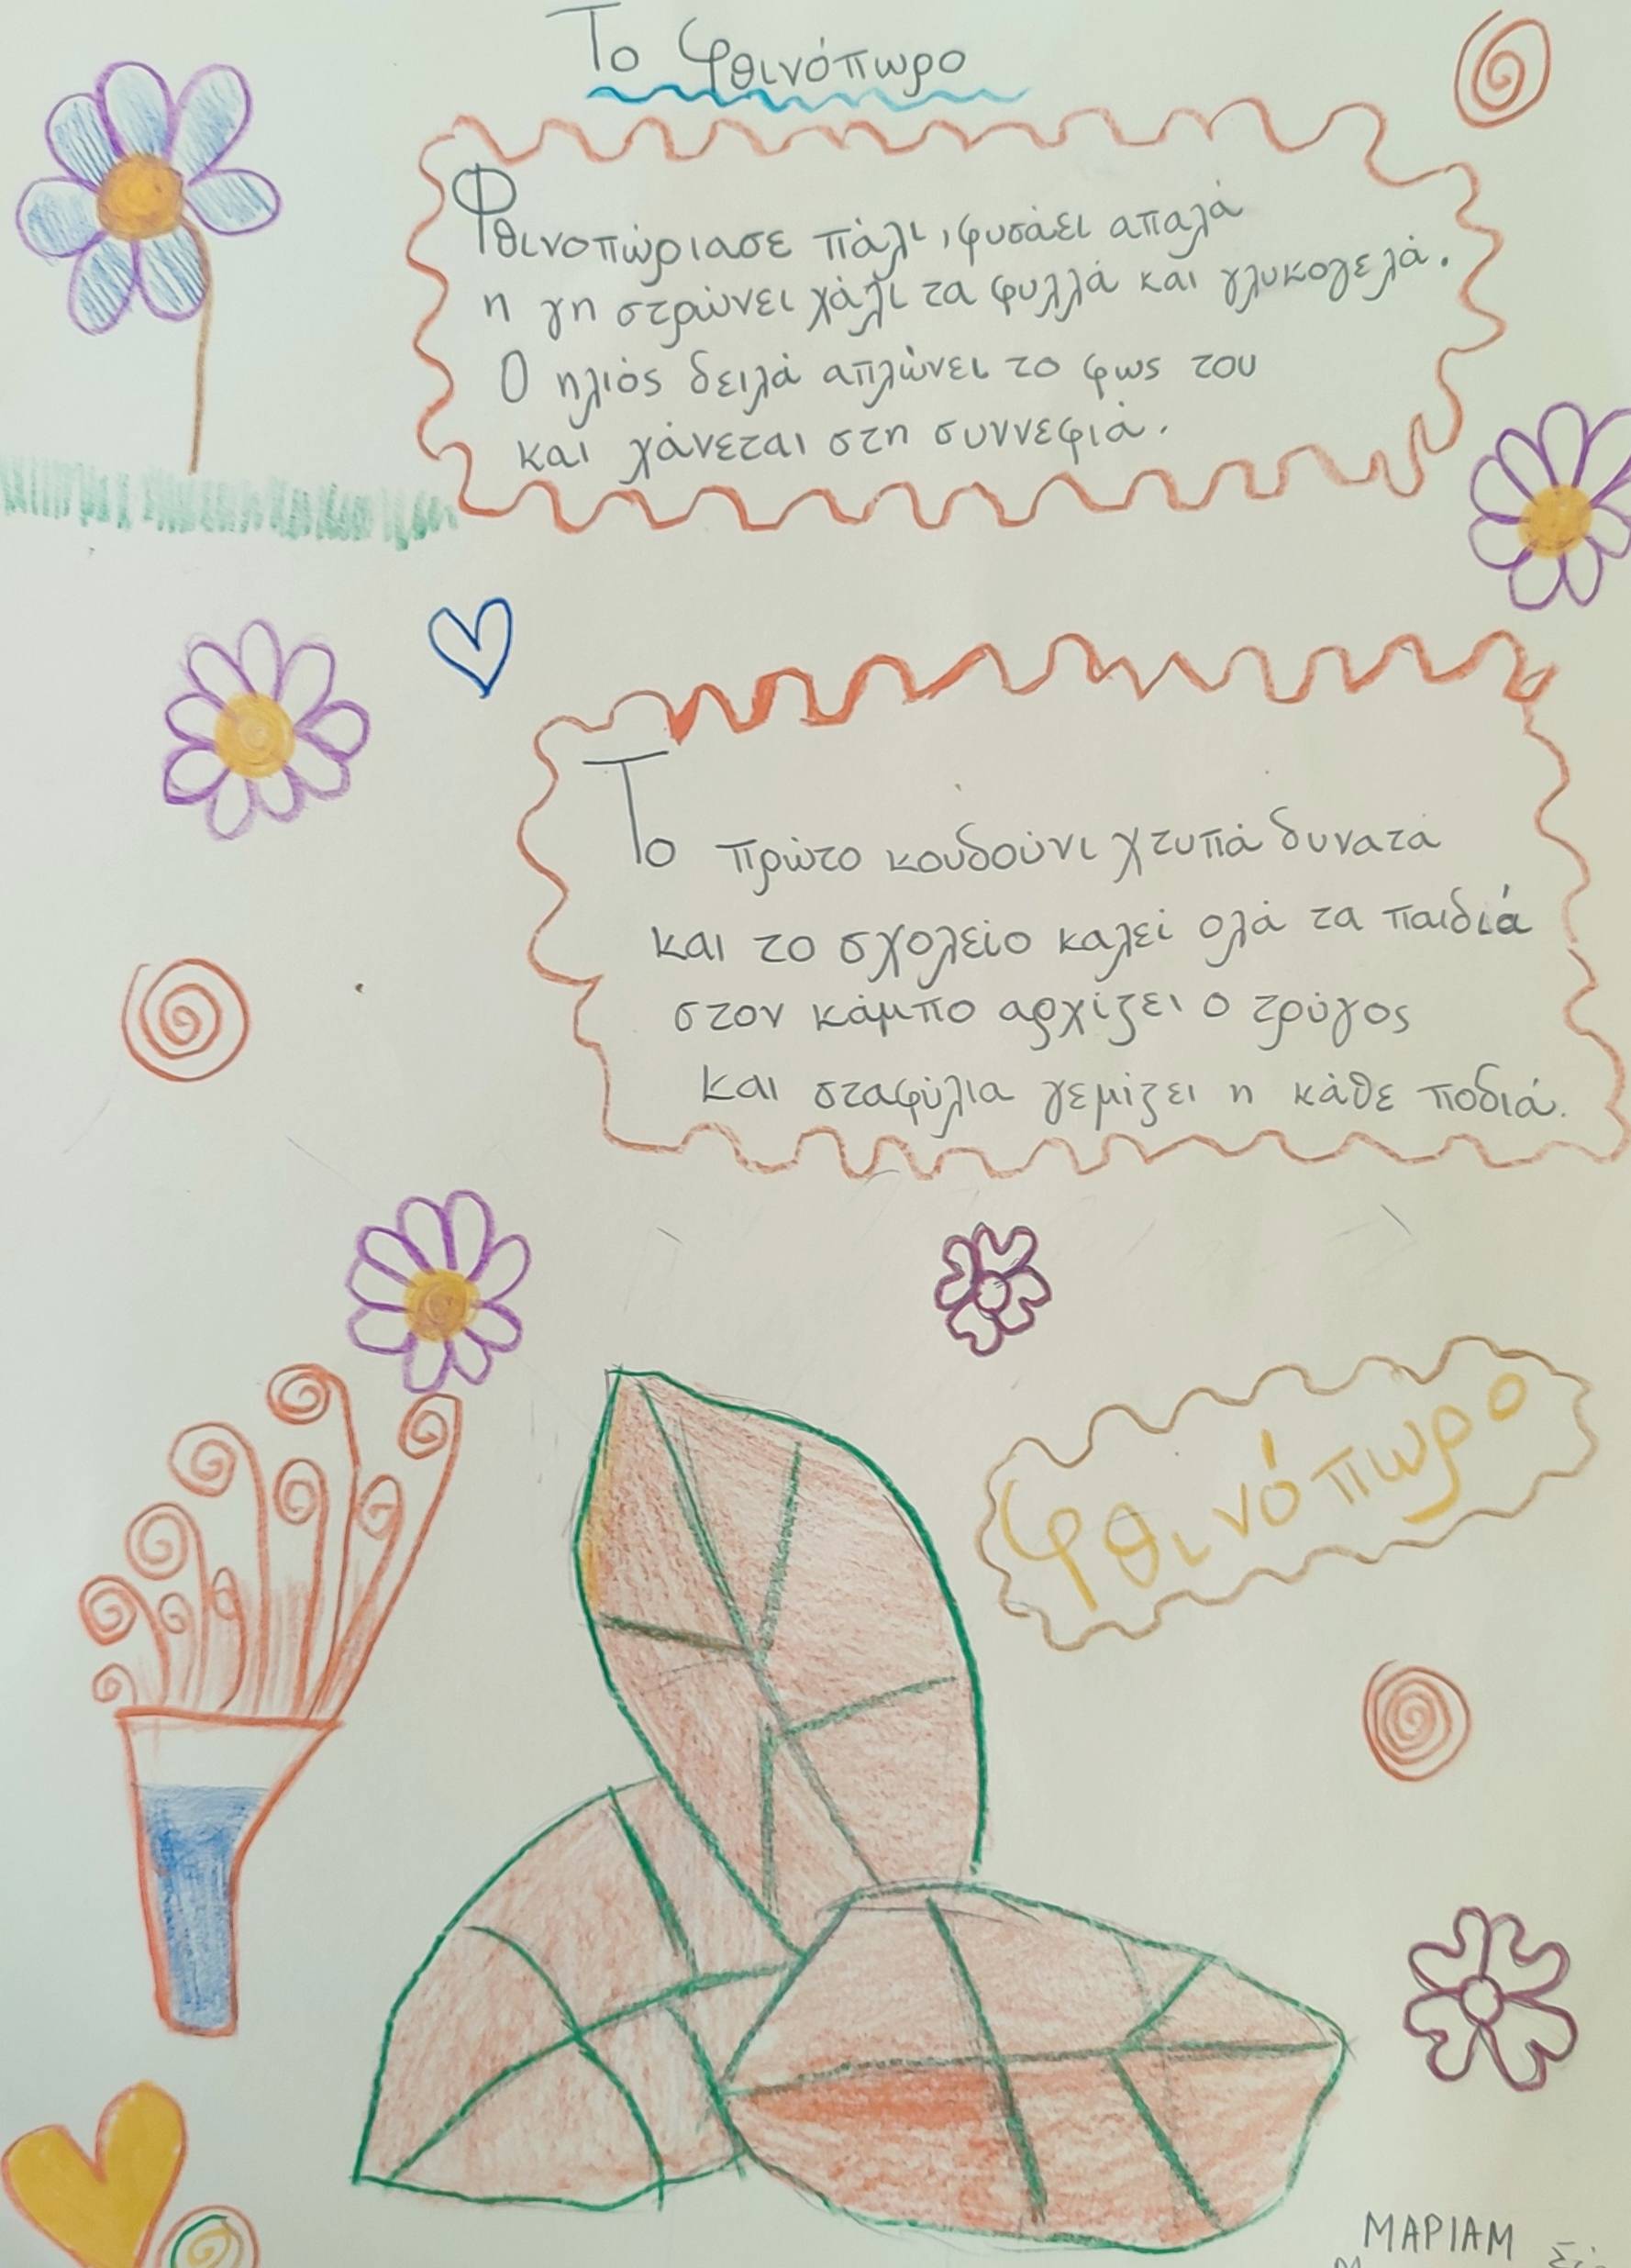 Το φθινόπωρο
Φθινοπώριασε πάλι, φυσάει απαλά
η γη στρώνει χάλι τα φυλλά και γλυκογελά.
Ο ηλιός δειλά απλώνει το φως του
και χάνεται στη συννεφιά.
Το πρώτο κουδούνι χτυπά δυνατά
και το σχολείο καλεί ολά τα παιδιά
στον κάμπο αρχίζει ο τρύγος
και σταφύλια γεμίζει η κάθε ποδιά.
φθινόπωρο
ΜΑΡΙΑΜ